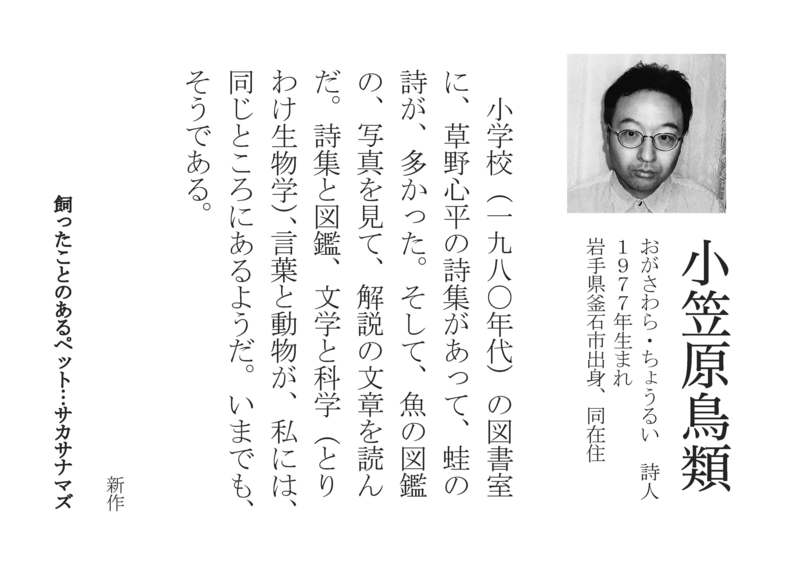 小笠原鳥類
おがさわら・ちょうるい　詩人
１９７７年生まれ
岩手県釜石市出身、同在住
小学校（一九八〇年代）の図書室
に、草野心平の詩集があって、蛙の
詩が、多かった。そして、魚の図鑑
の、写真を見て、解説の文章を読ん
だ。詩集と図鑑、文学と科学（とり
わけ生物学）、言葉と動物が、私には、
同じところにあるようだ。いまでも、
そうである。
新作
飼ったことのあるペット…サカサナマズ